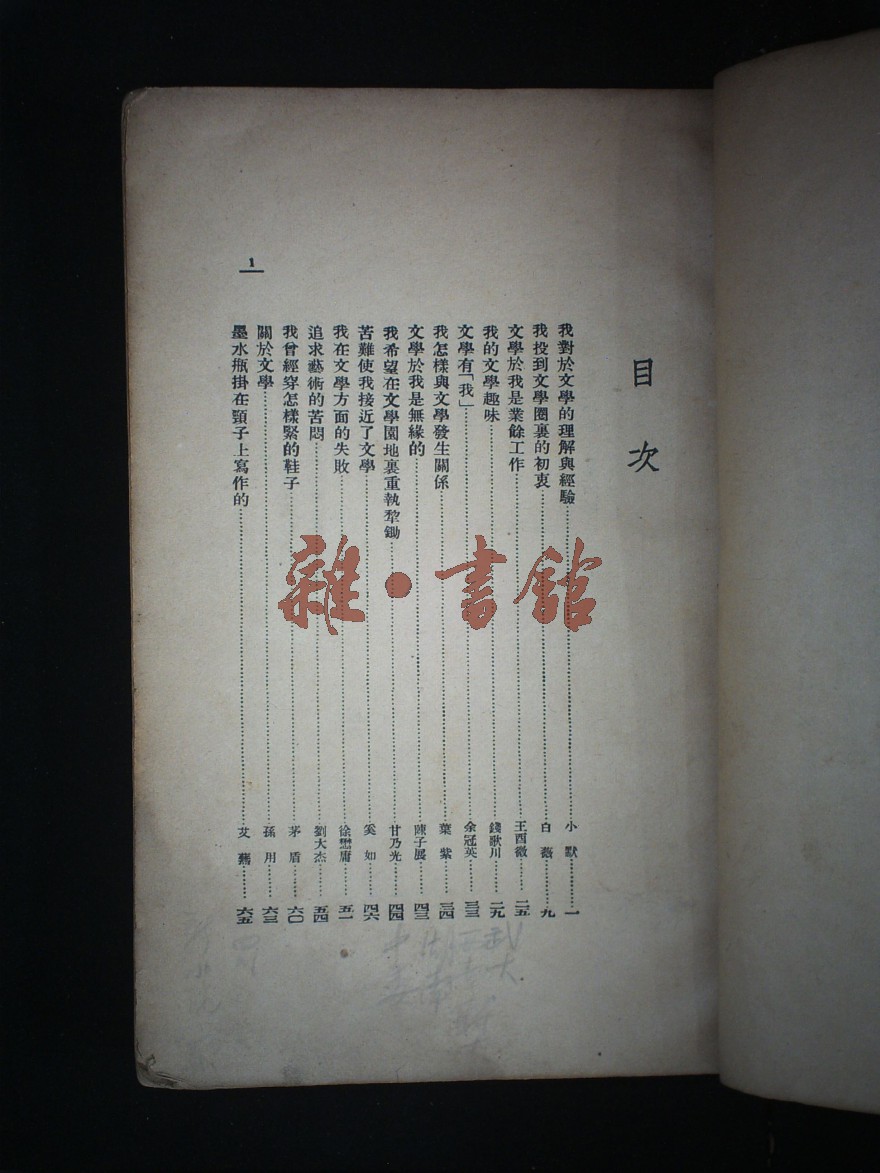 目次
我對於文學的理解與經驗……小默……一
我投到文學圈裏的初衷……白薇……九
文學於我是業餘工作……王酉微……二五
我的文學趣味……錢歌川……二九
文學有「我」……余冠英……三三
我怎樣與文學發生關係……葉紫……三四
文學於我是無緣的……陳子展……四三
我希望在文學園地裏重執犂鋤……甘乃光……四四
苦難使我接近了文學……奚如……四六
我在文學方面的失敗……徐懋庸……五一
追求藝術的苦悶……劉大杰……五四
我曾經穿怎樣緊的鞋子……茅盾……六〇
關於文學……孫用……六三
墨水瓶掛在頸子上寫作的……艾蕪……六五
1
雜·書館
武大
湖南